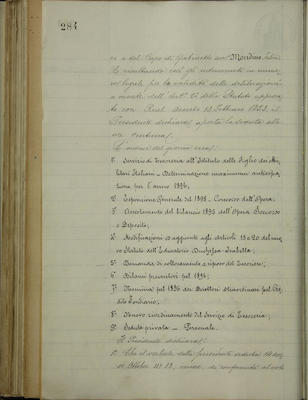 284
ca e del Capo di Gabinetto avv. Mondino
E risultando così gli intervenuti in numero
legale per la validità delle deliberazioni
a mente dell'art. dello Statuto approvato
con Real Decreto Febbraio 1883, il
Presidente dichiara aperta la seduta alle
ore
L'ordine del giorno reca:
1° Servizio di Tesoreria all'Istituto delle Figlie dei Militari
Italiani - Determinazione massimum anticipazione
per l'anno 1896;
2° Esposizione Generale del 1898 - Concorso dell'Opera;
3° Assestamento del bilancio 1895 dell'Opera Soccorso
e Deposito;
4° Modificazioni ed aggiunte agli Articoli 15 e 20 del nuovo
Statuto dell'Educatorio Duchessa Isabella;
5° Domanda di collocamento a riposo del Tesoriere;
6° Bilanci preventivi pel 1896;
7° Nomina pel 1896 dei Direttori straordinari pel Credito
Fondiario;
8° Nuovo riordinamento del Servizio di Tesoreria;
9° Seduta privata - Personale.
Il Presidente dichiara:
1° Che il verbale della precedente seduta
Ottobre n° 22, venne, in conformità al voto